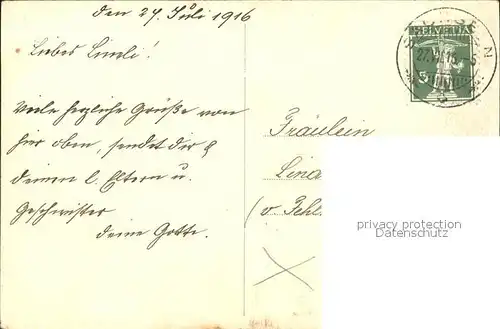 den 27. Juli 1916
Liebes Lineli!
Viele herzliche Grüße von
hier oben, sendet dir &
deinen l. Eltern u.
Geschwister
deine Gotte.
HELVETIA
5
27.VII.16
Fräulein
Lina
privacy protection
Datenschutz